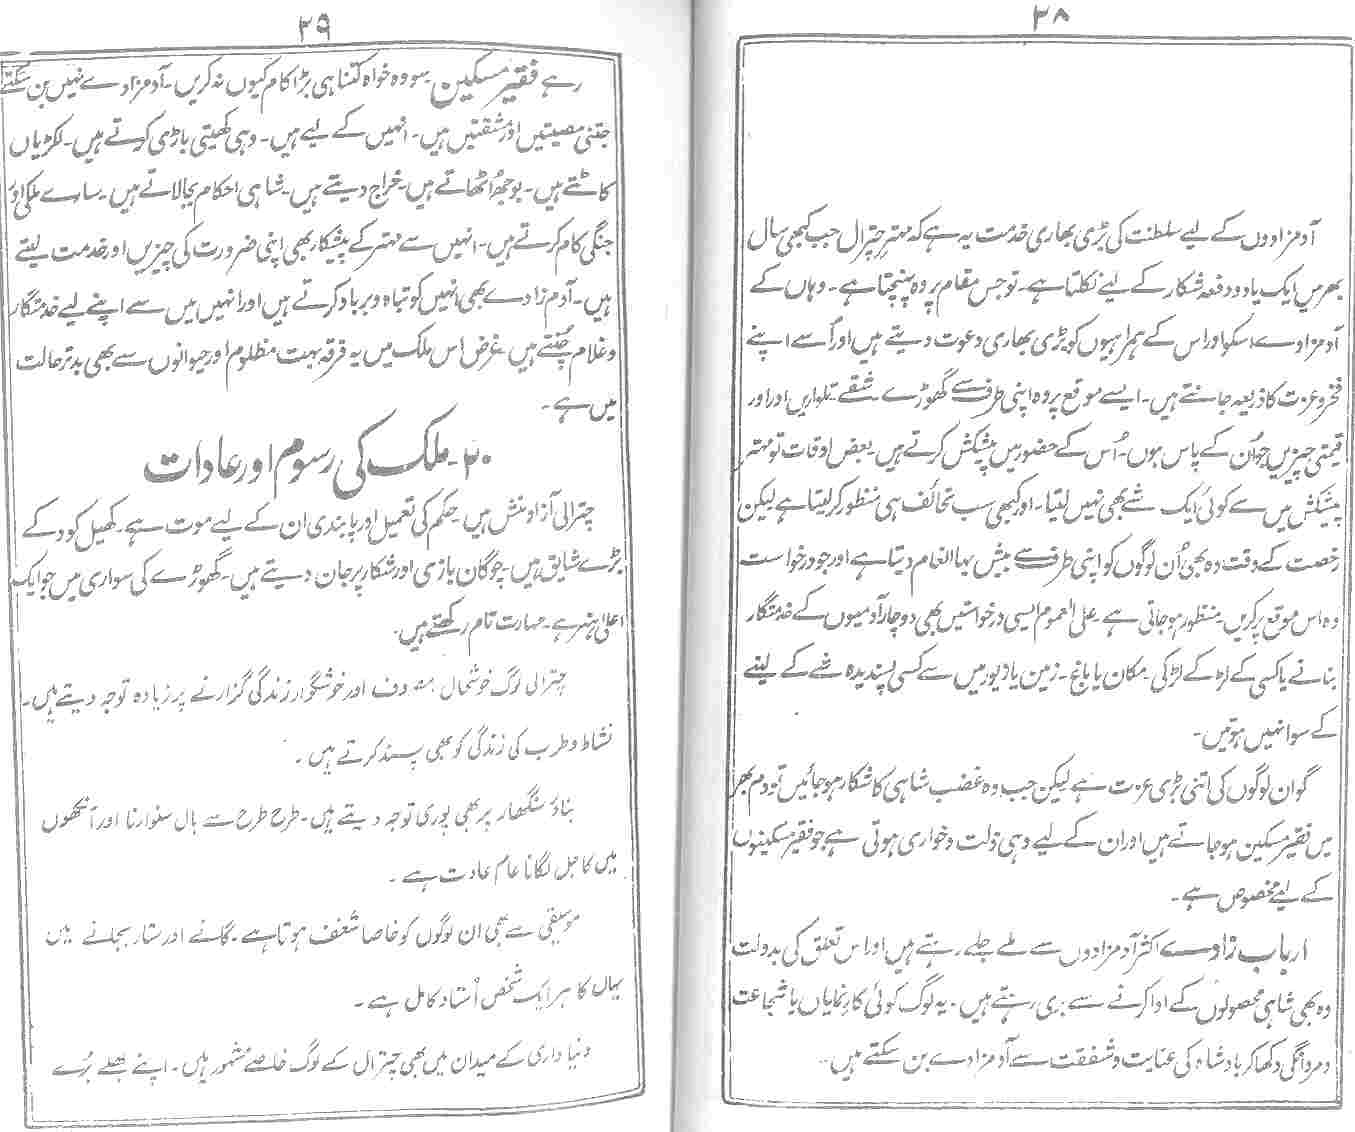 ۳۸
آدمزادوں کے لیے سلطنت کی بڑی بھاری خدمت یہ ہے کہ مہتر چترال جب کبھی سال
بھر میں ایک یا دو دفعہ شکار کے لیے نکلتا ہے۔ تو جس مقام پر وہ پہنچتا ہے۔ وہاں کے
آدمزادے اسکو اور اس کے ہمراہیوں کو بڑی بھاری دعوت دیتے ہیں اور اُسے اپنے
فخر و عزت کا ذریعہ جانتے ہیں۔ ایسے موقع پر وہ اپنی طرف سے گھوڑے۔ شقے۔ تلواریں اور اور
قیمتی چیزیں جو اُن کے پاس ہوں۔ اُس کے حضور میں پیشکش کرتے ہیں۔ بعض اوقات تو مہتر
پیشکش میں سے کوئی ایک شے بھی نہیں لیتا۔ اور کبھی سب تحائف ہی منظور کر لیتا ہے لیکن
رخصت کے وقت وہ بھی اُن لوگوں کو اپنی طرف سے بیش بہا انعام دیتا ہے اور جو درخواست
وہ اس موقع پر کریں۔ منظور ہو جاتی ہے۔ علی العموم ایسی درخواستیں بھی دو چار آدمیوں کے خدمتگار
بنانے یا کسی کے لڑکے لڑکی۔ مکان یا باغ۔ زمین یا زیور میں سے کسی پسندیدہ شے کے لینے
کے سوا نہیں ہوتیں۔
گو ان لوگوں کی اتنی بڑی عزت ہے لیکن جب وہ غضب شاہی کا شکار ہو جائیں تو دم بھر
میں فقیر مسکین ہو جاتے ہیں اور ان کے لیے وہی ذلت و خواری ہوتی ہے جو فقیر مسکینوں
کے لیے مخصوص ہے۔
ارباب زادے اکثر آدمزادوں سے ملے جلے رہتے ہیں اور اس تعلق کی بدولت
وہ بھی شاہی محصولوں کے ادا کرنے سے بری رہتے ہیں۔ یہ لوگ کوئی کار نمایاں یا شجاعت
و مردانگی دکھا کر بادشاہ کی عنایت و شفقت سے آدمزادے بن سکتے ہیں۔
۳۹
رہے فقیر مسکین سو وہ خواہ کتنا ہی بڑا کام کیوں نہ کریں۔ آدمزادے نہیں بن سکتے
جتنی مصیبتیں اور مشقتیں ہیں۔ انہیں کے لیے ہیں۔ وہی کھیتی باڑی کرتے ہیں۔ لکڑیاں
کاٹتے ہیں۔ بوجھ اُٹھاتے ہیں۔ خراج دیتے ہیں۔ شاہی احکام بجا لاتے ہیں۔ سارے ملکی اور
جنگی کام کرتے ہیں۔ انہیں سے مہتر کے پیشکار بھی اپنی ضرورت کی چیزیں اور خدمت لیتے
ہیں۔ آدم زادے بھی انہیں کو تباہ و برباد کرتے ہیں اور انہیں میں سے اپنے لیے خدمتگار
و غلام چُنتے ہیں۔ غرض اس ملک میں یہ فرقہ بہت مظلوم اور حیوانوں سے بھی بدتر حالت
میں ہے۔
۲۰۔ ملک کی رسوم اور عادات
چترالی آزاد منش ہیں۔ حکم کی تعمیل اور پابندی ان کے لیے موت ہے۔ کھیل کود کے
بڑے شایق ہیں۔ چوگان بازی اور شکار پر جان دیتے ہیں۔ گھوڑے کی سواری میں جو ایک
اعلیٰ ہنر ہے۔ مہارت تام رکھتے ہیں۔
چترالی لوگ خوشحال اور خوشگوار زندگی گزارنے پر زیادہ توجہ دیتے ہیں۔
نشاط و طرب کی زندگی کو بھی پسند کرتے ہیں۔
بناؤ سنگھار پر بھی پوری توجہ دیتے ہیں۔ طرح طرح سے بال سنوارنا اور آنکھوں
میں کاجل لگانا عام عادت ہے۔
موسیقی سے بھی ان لوگوں کو خاصا شغف ہوتا ہے۔ گانے اور ستار بجانے میں
یہاں کا ہر ایک شخص اُستاد کامل ہے۔
دنیا داری کے میدان میں بھی چترال کے لوگ خاصے مشہور ہیں۔ اپنے بھلے بُرے